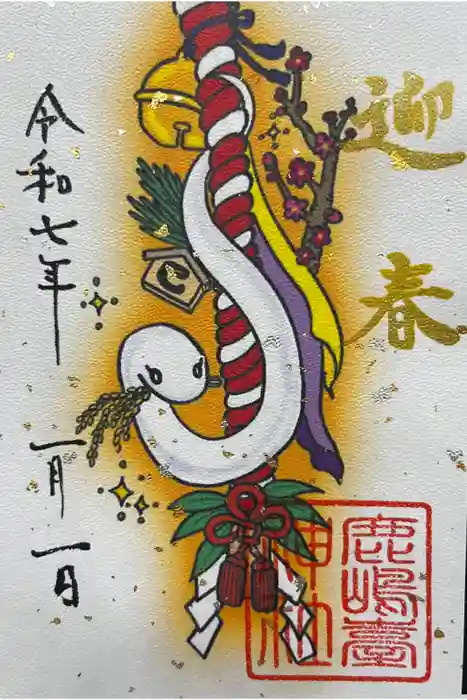 迎春
鹿嶋臺
神社
令和七年
一月一日